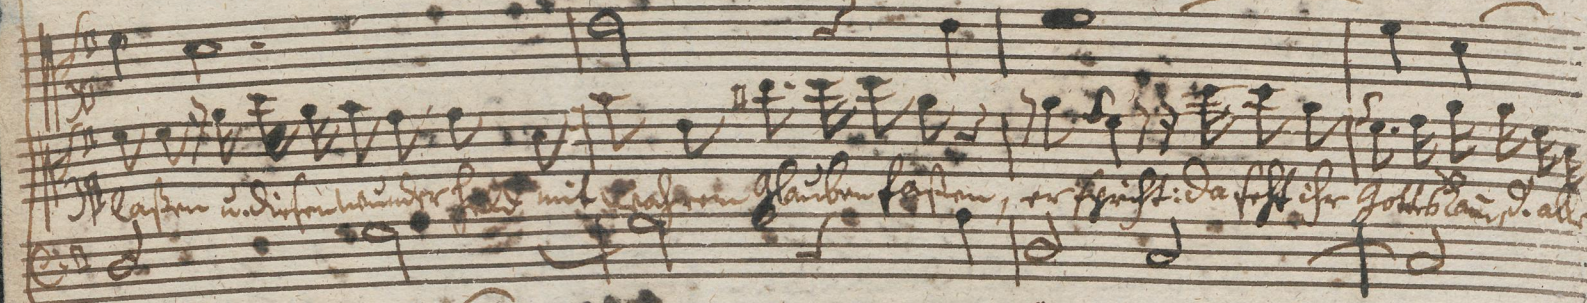 laßen u. diesen wunder held mit wahrem Glauben faßen, er spricht: da seht ihr Gottes Lam, d. alle